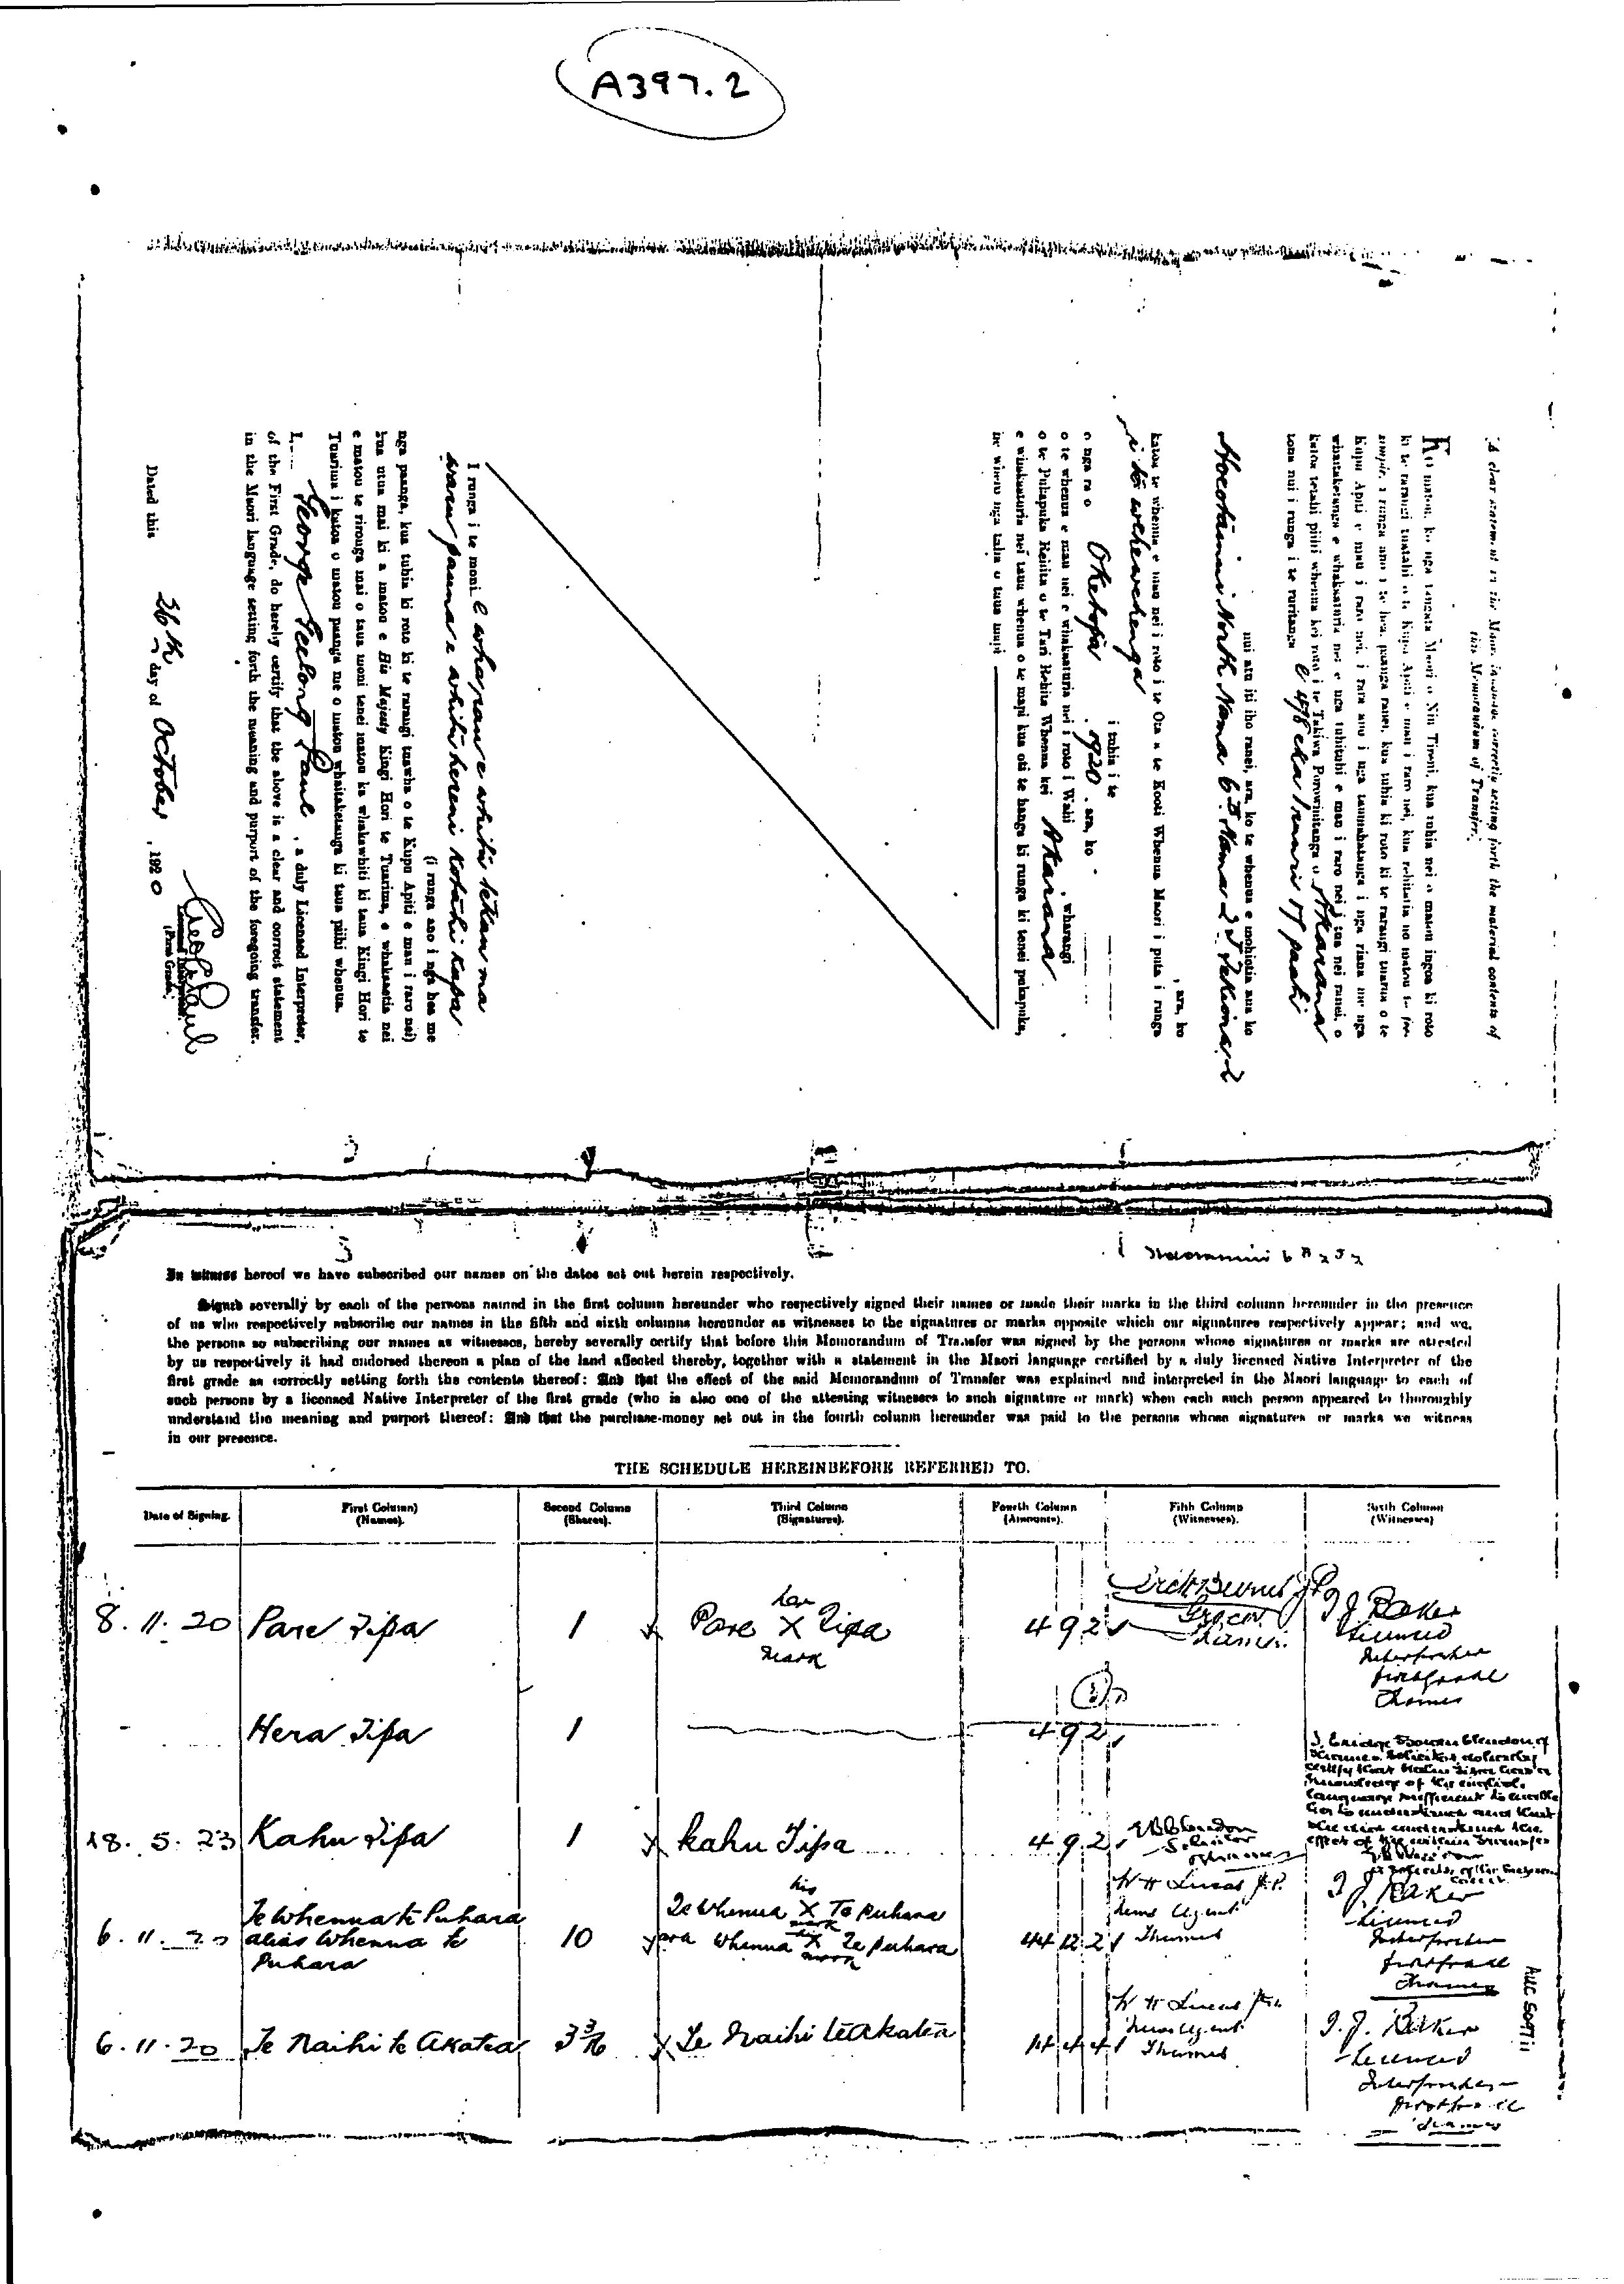 A397.2
A clear statement in the Maori language correctly setting forth the material contents of
this Memorandum of Transfer.
Ko matou, ko nga tangata Maori o Niu Tireni, kua tuhia nei o matou ingoa ki roto
ki te rarangi tuatahi o te Kupu Apiti e mau i raro nei, kua rehitatia no matou te
kupu Apiti e mau i raro nei, i raro ano i nga taumahatanga i nga riana me nga
whaitaketanga e whakaaturia nei e nga tuhituhi e mau i raro nei i tua nei ranei, o
katoa tetahi piihi whenua kei roto i te Takiwa Porowinitanga o Akarana
tona nui i runga i te ruritanga e 478 eka 1 ruuri 17 paaki
nui atu iti iho ranei, ara, ko te whenua e mohiotia ana ko
Hoeotainui North Nama 6B Nama 2J Tekiona 2
, ara, ko
katoa te whenua e mau nei i roto i te Ota a te Kooti Whenua Maori i puta i runga
i te wehewehenga
i tuhia i te
o nga ra o Oketopa . 1920 . ara, ko
o te whenua e mau nei e whakaaturia nei i roto i Wahi , wharangi
o te Pukapuka Rehita o te Tari Rehita Whenua kei Akarana .
e whakaaturia nei taua whenua o te mapi kua oti te hanga ki runga ki tenei pukapuka,
he whero nga taha o taua mapi
I runga i te moni e wha rau e whitu tekau ma
waru pauna e whitu hereni kotahi kapa
(i runga ano i nga hea me
nga paanga, kua tuhia ki roto ki te rarangi tuawha o te Kupu Apiti e mau i raro nei)
kua utua mai ki a matou e His Majesty Kingi Hori te Tuarima, e whakaaetia nei
e matou te rironga mai o taua moni tenei matou ka whakawhiti ki taua Kingi Hori te
Tuarima i katoa o matou paanga me o matou whaitaketanga ki taua piihi whenua.
I, George Geelong Paul , a duly Licensed Interpreter,
of the First Grade, do hereby certify that the above is a clear and correct statement
in the Maori language setting forth the meaning and purport of the foregoing transfer.
Dated this 26th day of October , 1920
Geo G Paul
Licensed Interpreter
(First Grade)
In witness hereof we have subscribed our names on the dates set out herein respectively.
Signed severally by each of the persons named in the first column hereunder who respectively signed their names or made their marks in the third column hereunder in the presence
of us who respectively subscribe our names in the fifth and sixth columns hereunder as witnesses to the signatures or marks opposite which our signatures respectively appear; and we,
the persons so subscribing our names as witnesses, hereby severally certify that before this Memorandum of Transfer was signed by the persons whose signatures or marks are attested
by us respectively it had endorsed thereon a plan of the land affected thereby, together with a statement in the Maori language certified by a duly licensed Native Interpreter of the
first grade as correctly setting forth the contents thereof: And that the effect of the said Memorandum of Transfer was explained and interpreted in the Maori language to each of
such persons by a licensed Native Interpreter of the first grade (who is also one of the attesting witnesses to such signature or mark) when each such person appeared to thoroughly
understand the meaning and purport thereof: And that the purchase-money set out in the fourth column hereunder was paid to the persons whose signatures or marks we witness
in our presence.
THE SCHEDULE HEREINBEFORE REFERRED TO.
Date of Signing. First Column) (Names). Second Column (Shares). Third Column (Signatures). Fourth Column (Amounts). Fifth Column (Witnesses). Sixth Column (Witnesses)
8. 11. 20 Pare Tipa 1 x Pare her X mark Tipa 4 9 2 Grocer Thames J J Baker Licensed Interpreter first grade Thames
Hera Tipa 1 4 9 2
18. 5. 23 Kahu Tipa 1 x Kahu Tipa 4 9 2 Solicitor Thames
6. 11. 20 Te Whenua te Puhara alias Whenua te Puhara 10 Te Whenua his X mark Te Puhara ara Whenua his X mark Te Puhara 44 12 2 W H Lucas J.P. News Agent Thames J J Baker Licensed Interpreter first grade Thames
6. 11. 20 Te Naihi te Akatea 3 3/16 x Te Naihi te Akatea 14 4 4 W H Lucas News Agent Thames J. J. Baker Licensed Interpreter first grade Thames